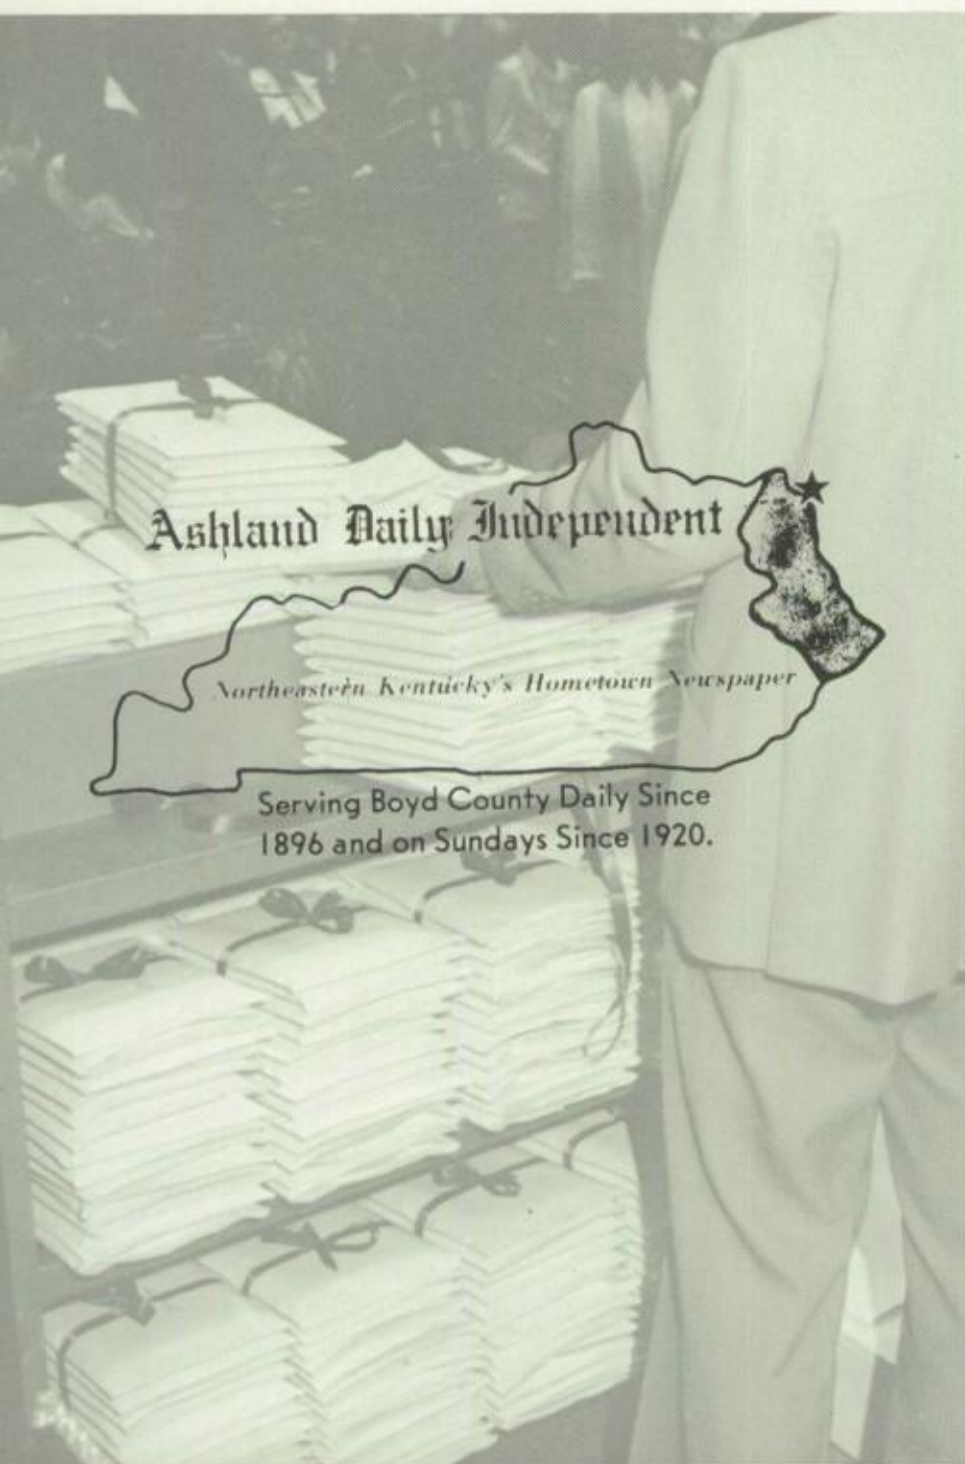 Ashland Daily Independent
Northeastern Kentucky's Hometown Newspaper
Serving Boyd County Daily Since
1896 and on Sundays Since 1920.